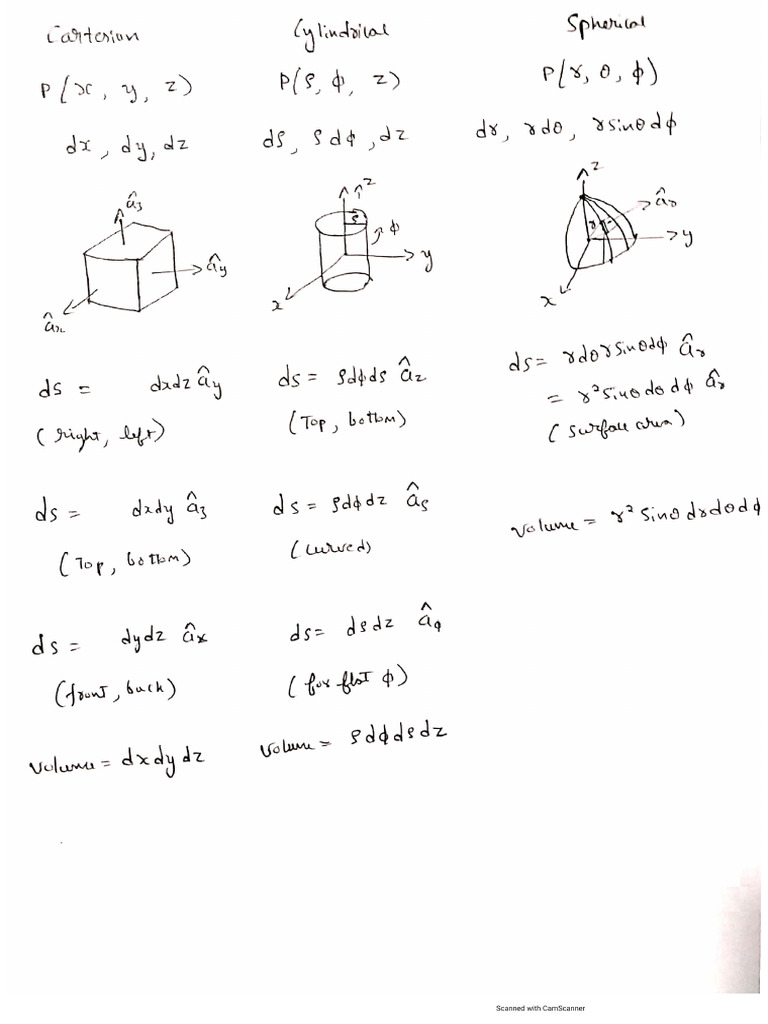 Cartesian
P(x, y, z)
dx, dy, dz
â₃
ây
âx
ds = dxdz ây
(right, left)
ds = dxdy â₃
(Top, bottom)
ds = dydz âx
(front, back)
Volume = dxdydz
Cylindrical
P(ρ, φ, z)
dρ, ρdφ, dz
z
ρ
φ
y
x
ds = ρdφdρ âz
(Top, bottom)
ds = ρdφdz âρ
(curved)
ds = dρdz âφ
(for flat φ)
Volume = ρdφdρdz
Spherical
P(r, θ, φ)
dr, rdθ, rsinθdφ
z
âr
r
y
x
ds = rdθrsinθdφ âr
= r²sinθdθdφ âr
(surface area)
Volume = r²sinθdrdθdφ
Scanned with CamScanner